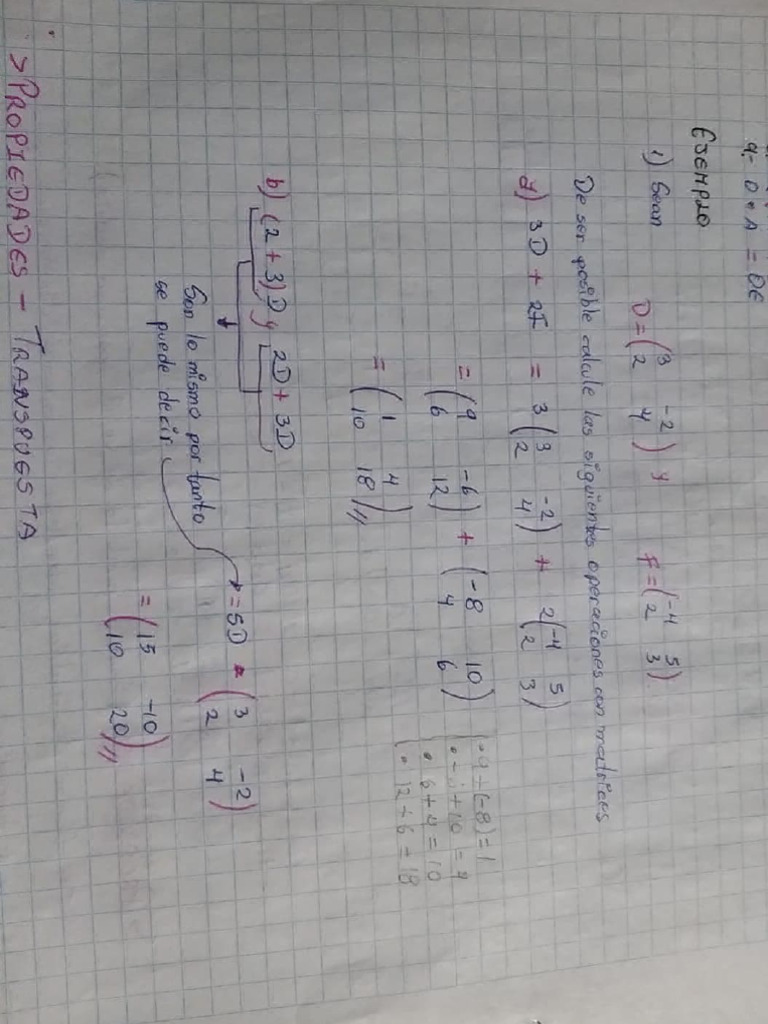 4.- 0 · A = 0E
EJEMPLO
1) Sean D = ( 3 -2 ) y F = ( -4 5 )
2 4 2 3
De ser posible calcule las siguientes operaciones con matrices
a) 3D + 2F = 3 ( 3 -2 ) + 2 ( -4 5 )
2 4 2 3
= ( 9 -6 ) + ( -8 10 )
6 12 4 6
= ( 1 4 ) //
10 18
· 9 + (-8) = 1
· -6 + 10 = 4
· 6 + 4 = 10
· 12 + 6 = 18
b) (2 + 3)D y 2D + 3D
Son lo mismo por tanto
se puede decir
= 5D • ( 3 -2 )
2 4
= ( 15 -10 ) //
10 20
> PROPIEDADES - TRANSPUESTA